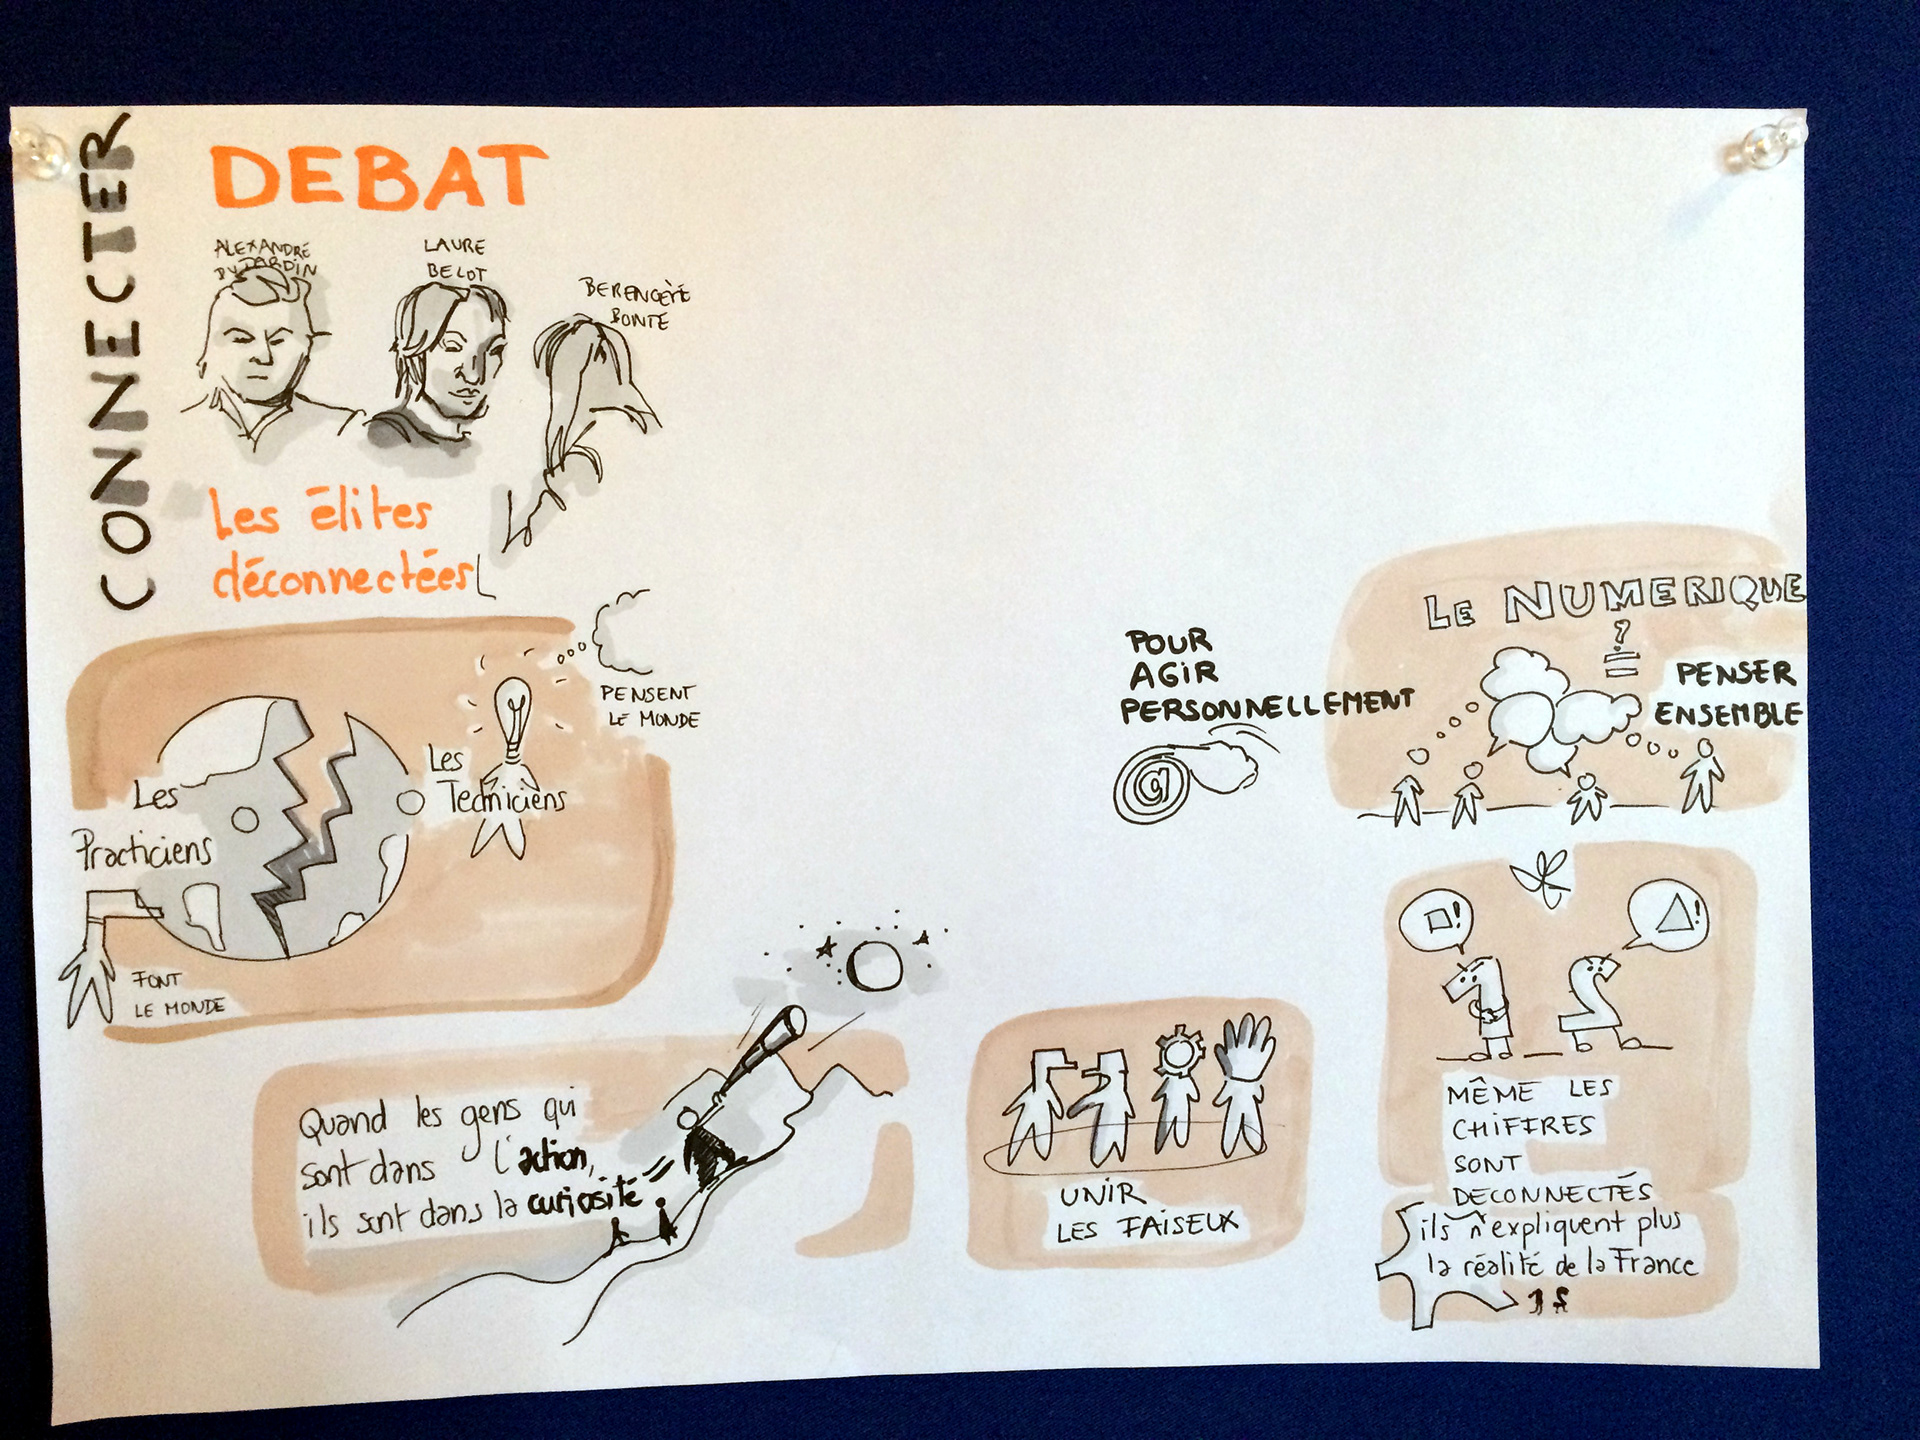 CONNECTER
DEBAT
ALEXANDRE
DUJARDIN
LAURE
BELOT
BERENGÈRE
BONTE
Les élites
déconnectées
PENSENT
LE MONDE
Les
Techniciens
Les
Practiciens
FONT
LE MONDE
Quand les gens qui
sont dans l'action,
ils sont dans la curiosité
UNIR
LES FAISEUX
POUR
AGIR
PERSONNELLEMENT
@
LE NUMERIQUE
?
=
PENSER
ENSEMBLE
!
!
1
2
MÊME LES
CHIFFRES
SONT
DECONNECTÉS
ils n'expliquent plus
la réalité de la France